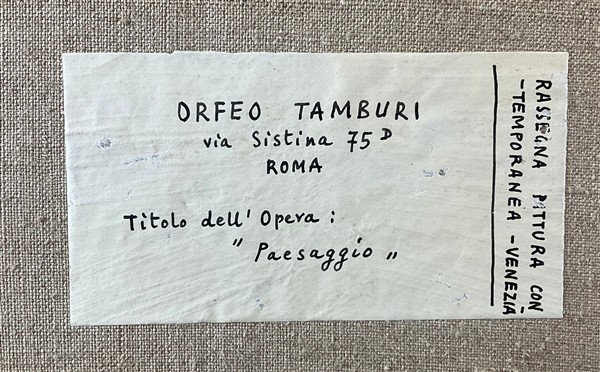 ORFEO TAMBURI
via Sistina 75 D
ROMA
Titolo dell'Opera :
" Paesaggio „
RASSEGNA PITTURA CON
-TEMPORANEA - VENEZIA